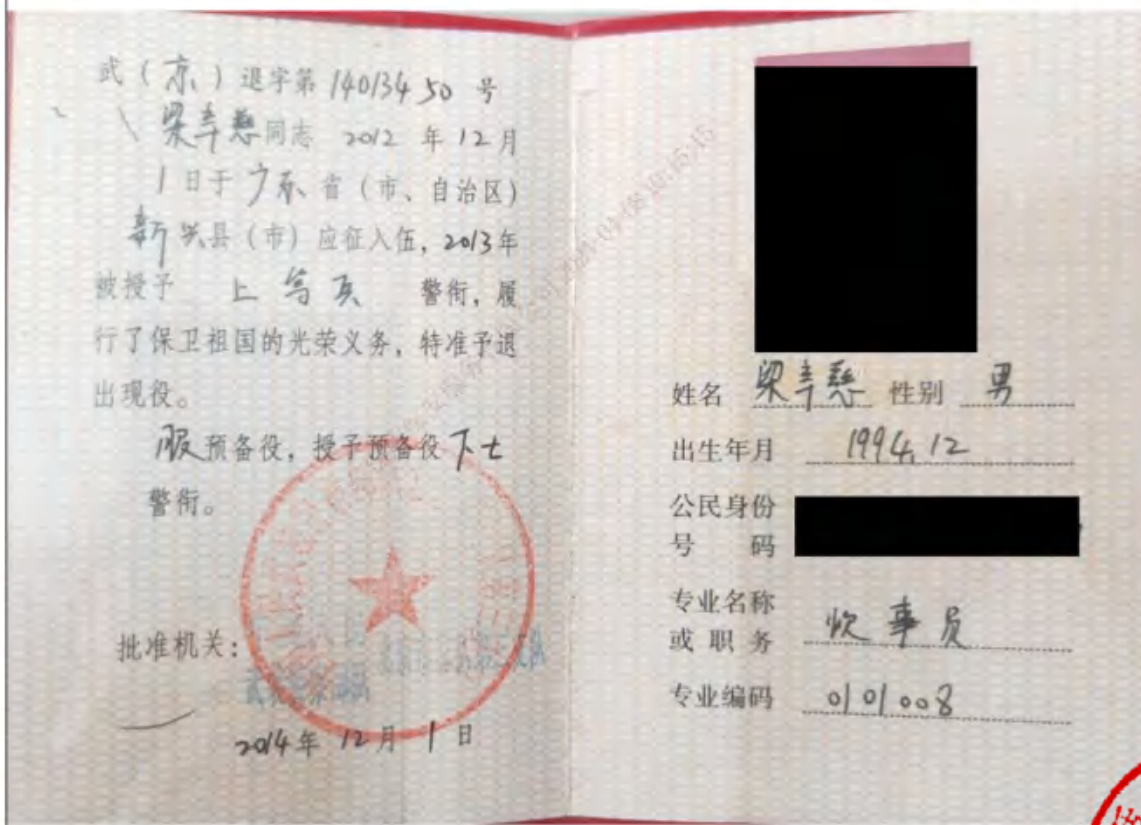 武（京）退字第 14013450 号
梁幸慈同志 2012 年 12 月
1 日于广东省（市、自治区）
新兴县（市）应征入伍，2013年
被授予 上等兵 警衔，履
行了保卫祖国的光荣义务，特准予退
出现役。
服预备役，授予预备役下士
警衔。
批准机关：
2014年 12 月 1 日
姓名 梁幸慈 性别 男
出生年月 1994.12
公民身份
号 码
专业名称
或 职 务 炊事员
专业编码 0101008